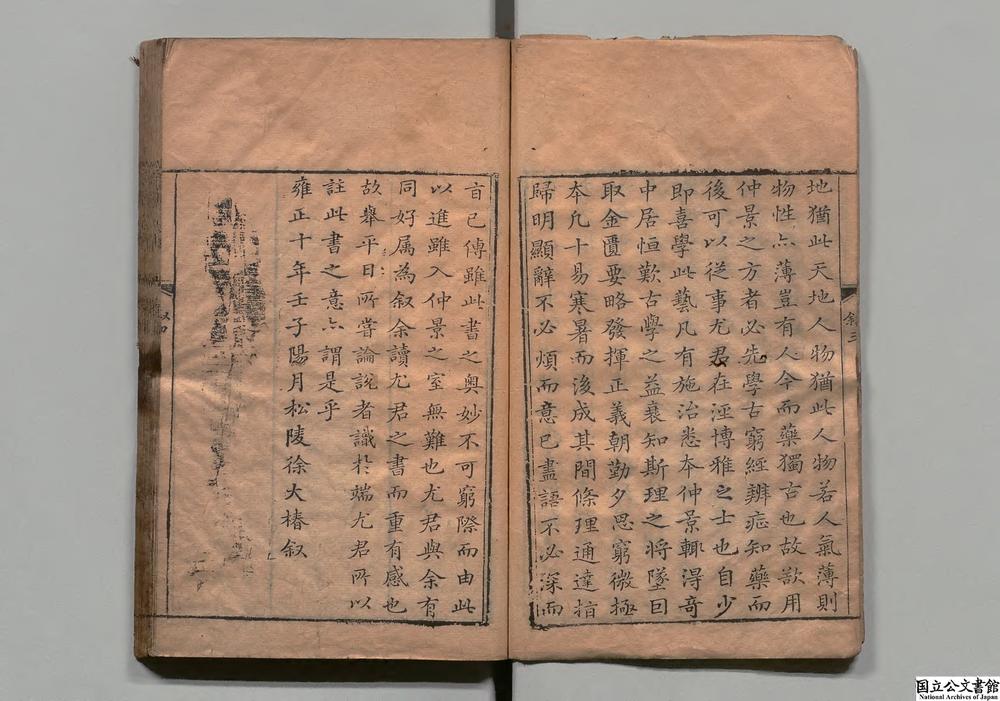 地猶此天地人物猶此人物若人氣薄則
物性亦薄豈有人今而藥獨古也故欲用
仲景之方者必先學古窮經辨症知藥而
後可以從事尤君在涇博雅之士也自少
即喜學此藝凡有施治悉本仲景輒得奇
中居恒歎古學之益衰知斯理之將墜因
取金匱要略發揮正義朝勤夕思窮微極
本凡十易寒暑而後成其間條理通達指
歸明顯辭不必煩而意已盡語不必深而
旨已傳雖此書之奧妙不可窮際而由此
以進雖入仲景之室無難也尤君與余有
同好属為叙余讀尤君之書而重有感也
故舉平日所嘗論說者識於端尤君所以
註此書之意亦謂是乎
雍正十年壬子陽月松陵徐大椿叙
叙三
国立公文書館
National Archives of Japan